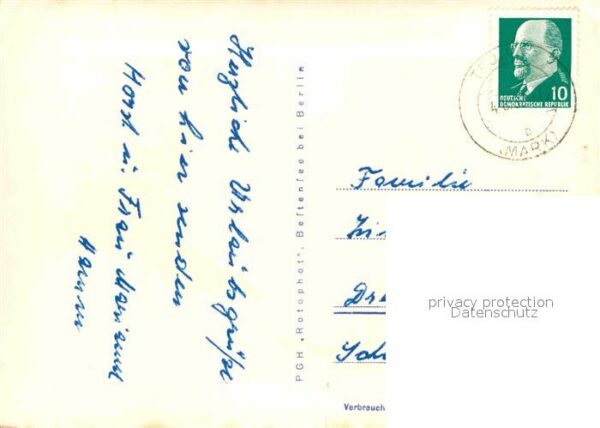 Herzliche Urlaubsgrüße
von hier senden
Horst u. Frau Mariann
PGH „Rotophot“, Bestensee bei Berlin
10
DEUTSCHE
DEMOKRATISCHE REPUBLIK
(MARK)
b
Familie
Dre
Verbrauch
privacy protection
Datenschutz